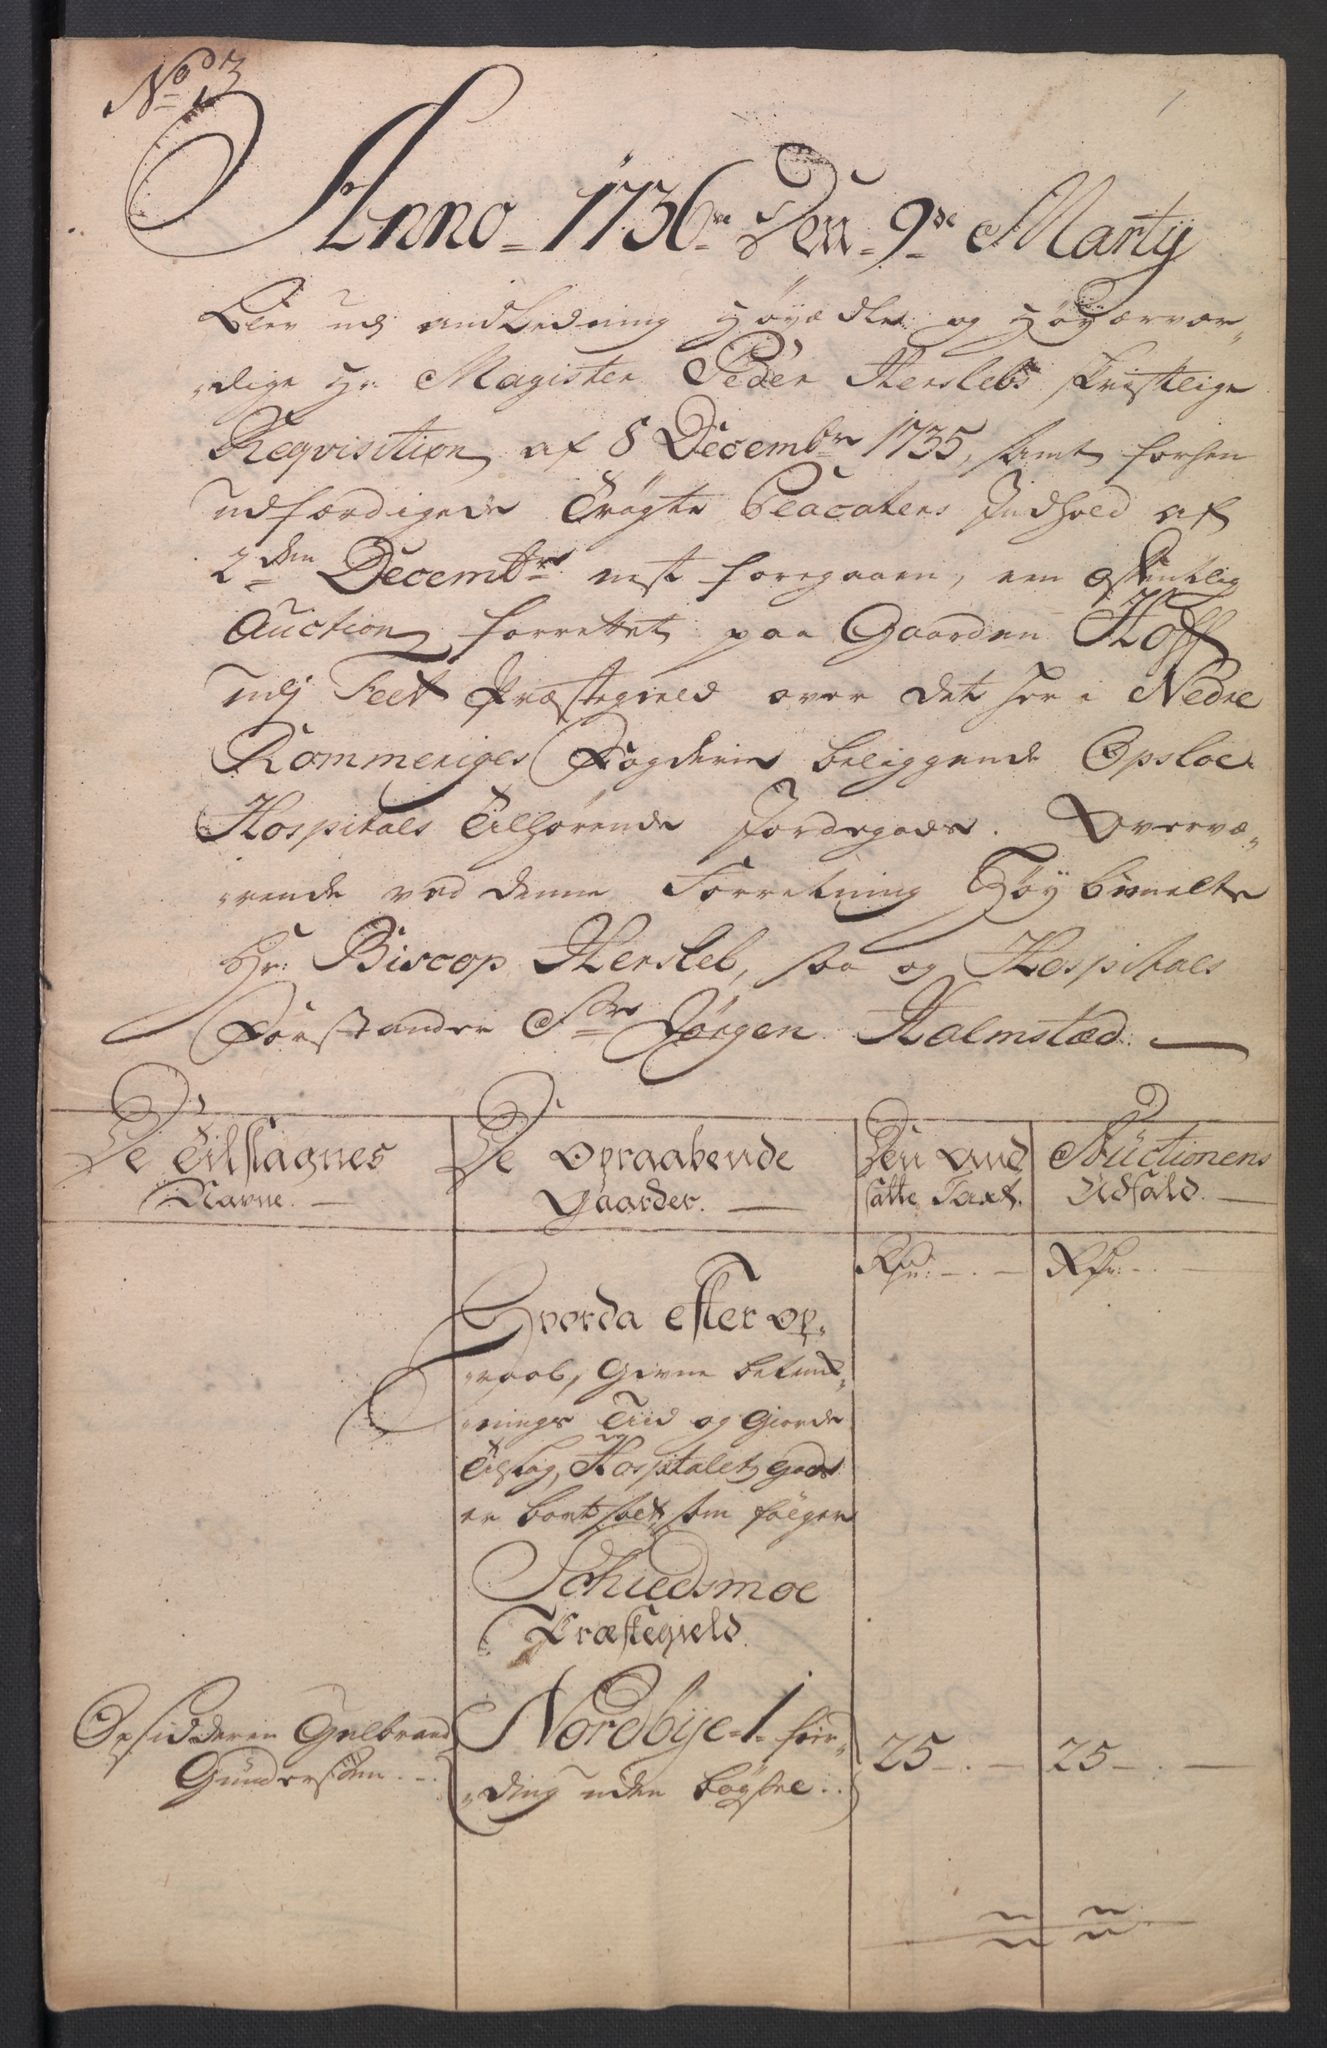 No 3
Anno 1736 den 9de Martij
Blev udj andledning Høyædle og Høyærvær-
dige Hr: Magister Peder Herslebs skriftlige
Reqvisition af 8 Decembr 1735, samt forhen
udfærdigede trøgte Placaters Indhold af
2den Decembr nest foregaaen, een offentlig
Auction forrettet paa Gaarden Hoff
udj Feet Præstegield over det her i Nedre
Rommeriges Fogderie beliggende Opsloe
Hospitals tilhørende Jordegods. Overvæ-
rende ved denne Forretning Høy bemelte
Hr: Biscop Hersleb, saa og Hospitals
Forstander Sr Jørgen Halmstad.
De Tilslagnes
Navne.
De Opraabende
Gaarder.
Den And
satte Taxt.
Auctionens
Udfald.
Rdr:
Rdr:
Hvorda efter op-
raab, Givne betænk-
nings Tiid og Giorde
Tilslag, Hospitalets gods
er bort sat som følger
Schiedsmoe
Præstegield.
Opsidderen Gulbrand
Gundersøn.
Nordbye 1 fier-
ding uden bøgsle
25
25